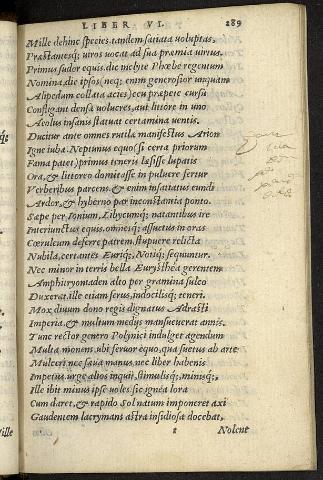 LIBER VI. 289
Mille dehinc species. tandem satiata voluptas.
Præstantesq; viros vocat ad sua præmia virtus.
Primus sudor equis. dic inclyte Phœbe regentum
Nomina, dic ipsos: neq; enim generosior unquam
Alipedum collata acies) ceu præpete cursu
Confligant densæ volucres, aut littore in uno
Aeolus insanis statuat certamina uentis.
Ducitur ante omnes rutilæ manifestus Arion
Igne iubæ. Neptunus equo (si certa priorum
Fama patet) primus teneri læsisse lupatis
Ora, & littoreo domitasse in puluere fertur
Verberibus parcens. & enim insatiatus eundi
Ardor, & hyberno par inconstantia ponto.
Sæpe per Ionium, Libycumq; natantibus ire
Interiunctus equis, omnesq; assuetus in oras
Cœruleum deferre patrem. stupuere relicta
Nubila, certantes Euriq;, Notiq; sequuntur.
Nec minor in terris bella Eurysthea gerentem
Amphitryoniaden alto per gramina sulco
Duxerat. ille etiam ferus, indocilisq; teneri.
Mox diuum dono regis dignatus Adrasti
Imperia. & multum medijs mansueuerat annis.
Tunc rector genero Polynici indulget agendum
Multa monens, ubi feruor equo, qua suetus ab arte
Mulceri: ne sæua manus, nec liber habenis
Impetus. urge alios inquit, stimulisq;, minisq;,
Ille ibit minus ipse uoles. sic ignea lora
Cum daret, & rapido Sol natum imponeret axi
Gaudentem lacrymans astra insidiosa docebat,
Nolent